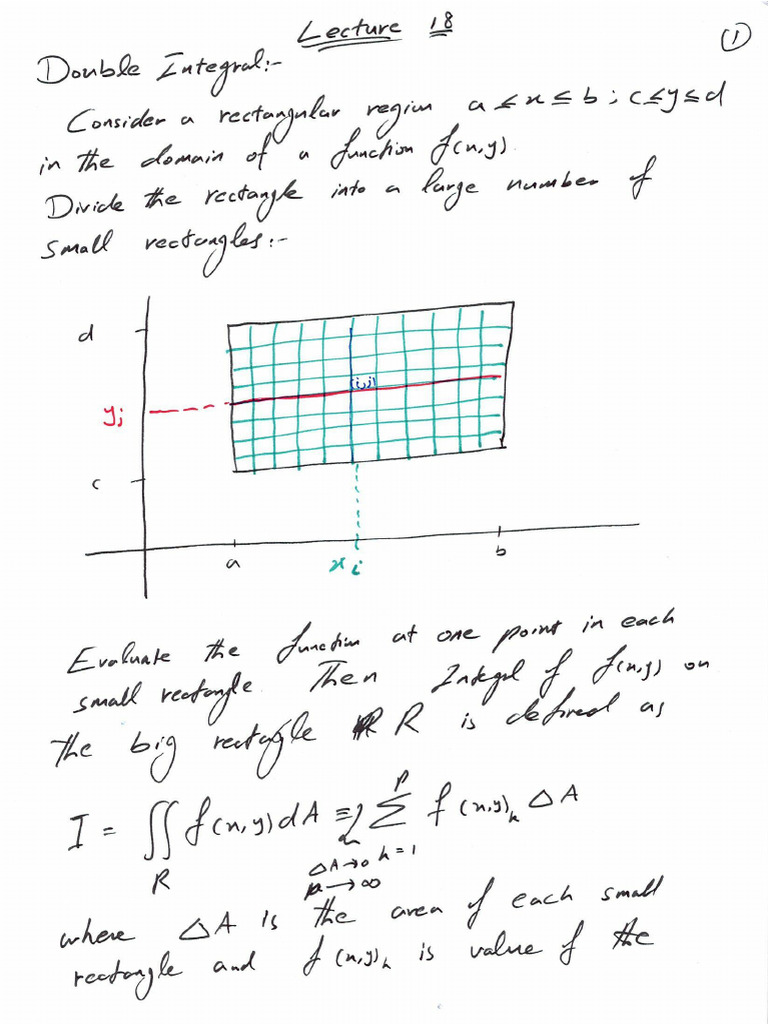 Lecture 18
①
Double Integral:-
Consider a rectangular region a ≤ x ≤ b ; c ≤ y ≤ d
in the domain of a function f(x,y).
Divide the rectangle into a large number of
small rectangles:-
d
(i,j)
yj
c
a
xi
b
Evaluate the function at one point in each
small rectangle. Then Integral of f(x,y) on
the big rectangle R is defined as
I = ∬ f(x,y) dA = ∑ f(x,y)k ΔA
R
p
ΔA→0 k=1
p→∞
where ΔA is the area of each small
rectangle and f(x,y)k is value of the